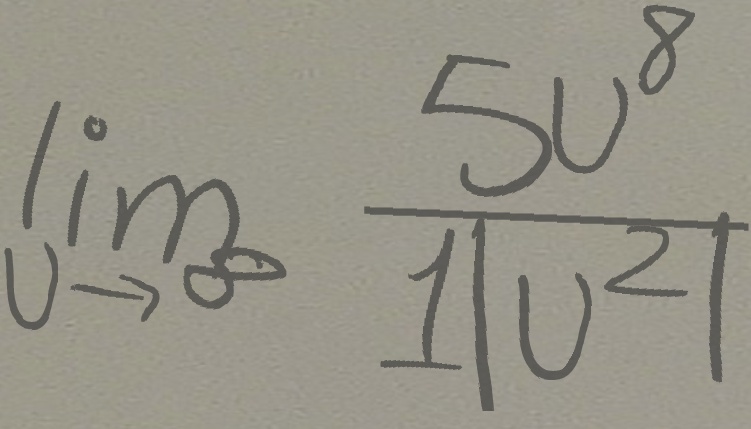 lim U→∞ 5U⁸ / 1|U²|